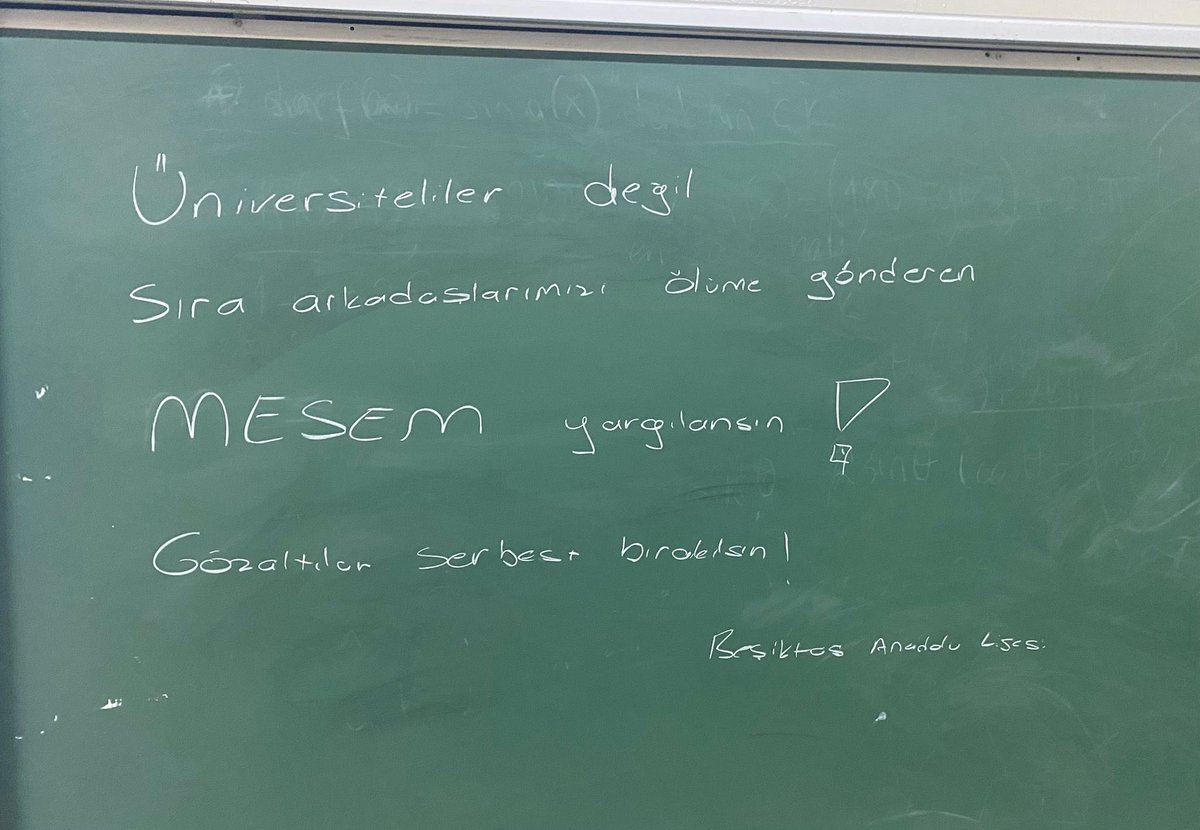 Üniversiteliler değil
Sıra arkadaşlarımızı ölüme gönderen
MESEM yargılansın !
Gözaltılar serbest bırakılsın!
Beşiktaş Anadolu Lisesi